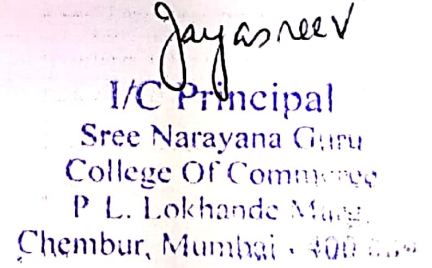 Jayasreev
I/C Principal
Sree Narayana Guru
College Of Commerce
P L. Lokhande Marg,
Chembur, Mumbai - 400